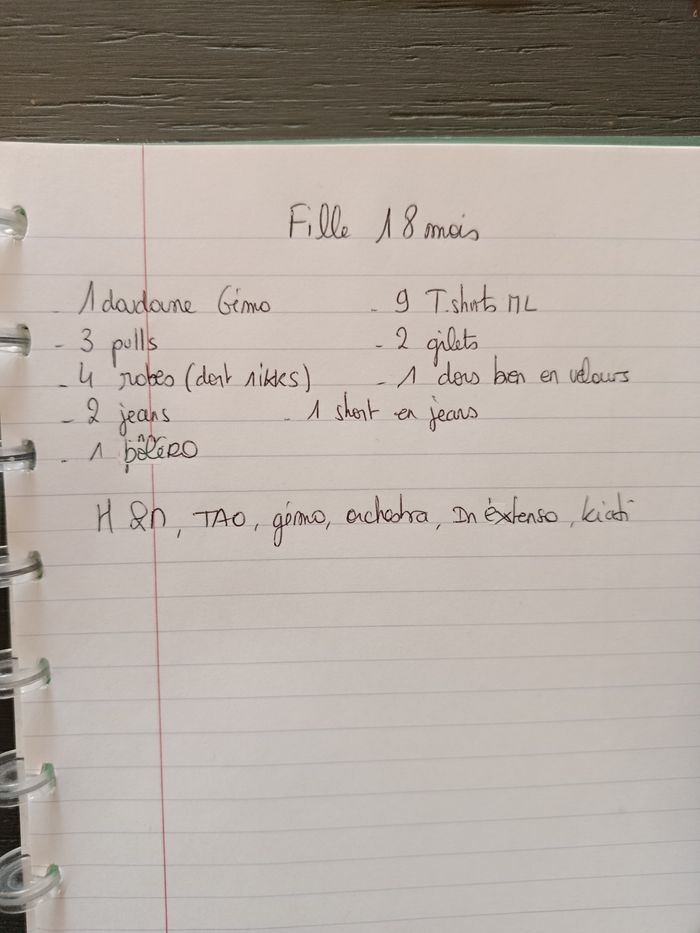 Fille 18 mois
- 1 doudoune Gémo - 9 T.shirts ML
- 3 pulls - 2 gilets
- 4 robes (dont nikkes) - 1 dors bien en velours
- 2 jeans - 1 short en jeans
- 1 boléro
H&M, TAO, gémo, orchestra, In éxtenso, kiabi